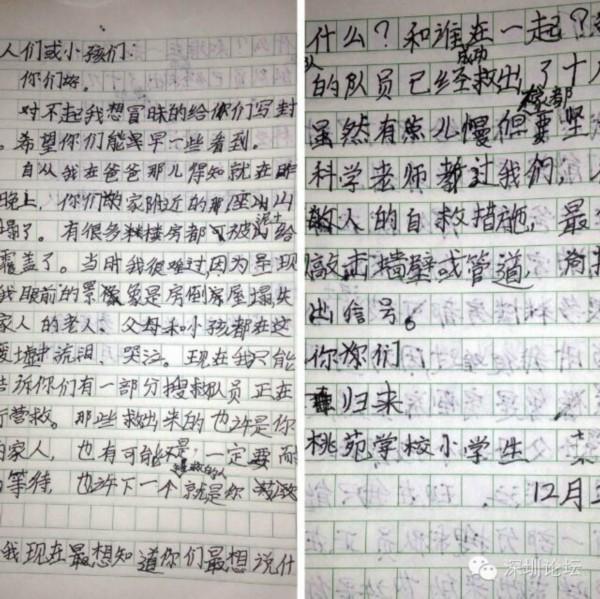 人们或小孩们：
你们好。
对不起我想冒昧的给你们写封
。希望你们能早早一些看到。
自从我在爸爸那儿得知就在昨
晚上，你们家附近的那座山
塌了。有很多楼房都被泥土给
覆盖了。当时我很难过，因为呈现
我眼前的景象是房倒屋塌，失
家人的老人、父母和小孩都在这
废墟中流泪、哭泣。现在我只能
告诉你们有一部分搜救队员正在
行营救。那些救出来的也许是你
的家人，也有可能不是，一定要耐
等待，也许下一个就是你
我现在最想知道你们最想说什
什么？和谁在一起？
的队员已经成功救出了十
虽然有点儿慢但都要坚
科学老师教过我们：
的人的自救措施，最
敲击墙壁或管道，
出信号。
你们
归来
桃苑学校小学生
12月
深圳论坛